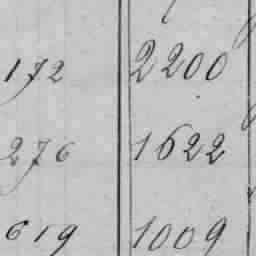 172 2200
276 1622
619 1009